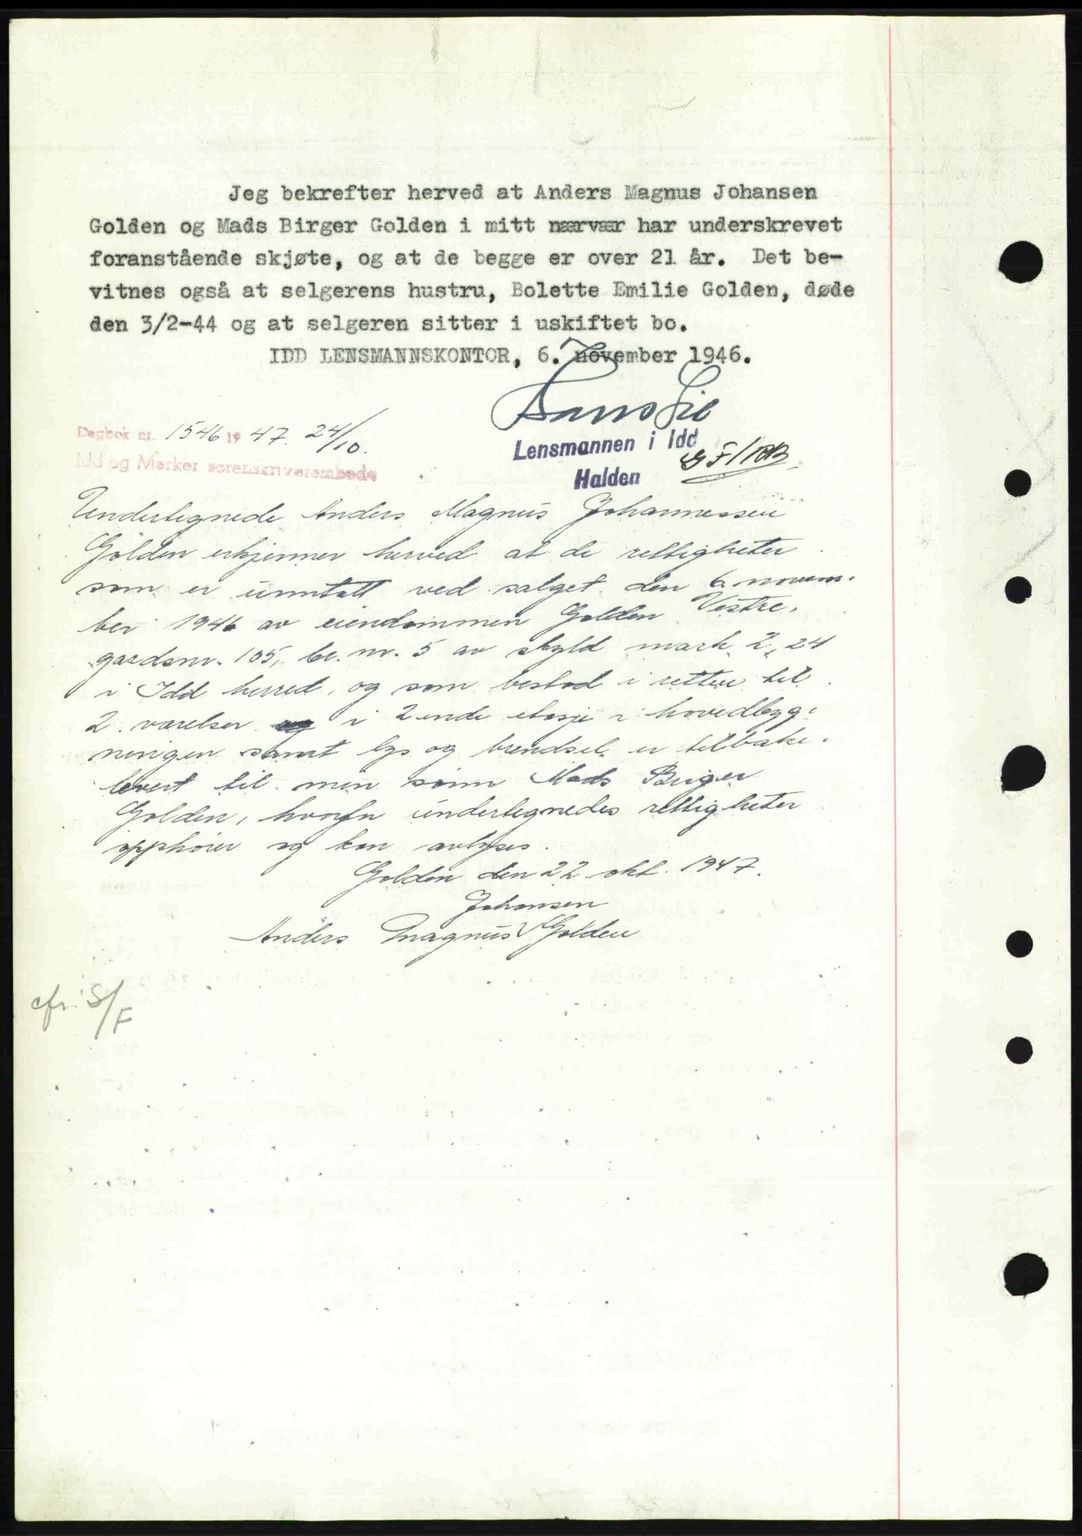 Jeg bekrefter herved at Anders Magnus Johansen
Golden og Mads Birger Golden i mitt nærvær har underskrevet
foranstående skjøte, og at de begge er over 21 år. Det be-
vitnes også at selgerens hustru, Bolette Emilie Golden, døde
den 3/2-44 og at selgeren sitter i uskiftet bo.
IDD LENSMANNSKONTOR, 6. november 1946.
Lensmannen i Idd
Halden
Dagbok nr. 1546 1947. 24/10.
Idd og Marker sorenskriverembede
Undertegnede Anders Magnus Johannessen
Golden erkjenner herved at de rettigheter
som er unntatt ved salget den 6 novem-
ber 1946 av eiendommen Golden Vestre,
gardsnr. 105, br. nr. 5 av skyld mark 2,24
i Idd herred, og som bestod i retten til
2 værelser i 2 ende etasje i hovedbyg-
ningen samt lys og brendsel er tilbake-
levert til min sønn Mads Birger
Golden, hvorfor undertegnedes rettigheter
opphører og kan avlyses.
Golden den 22 okt. 1947.
Johansen
Anders Magnus V Golden
cfr. S/F